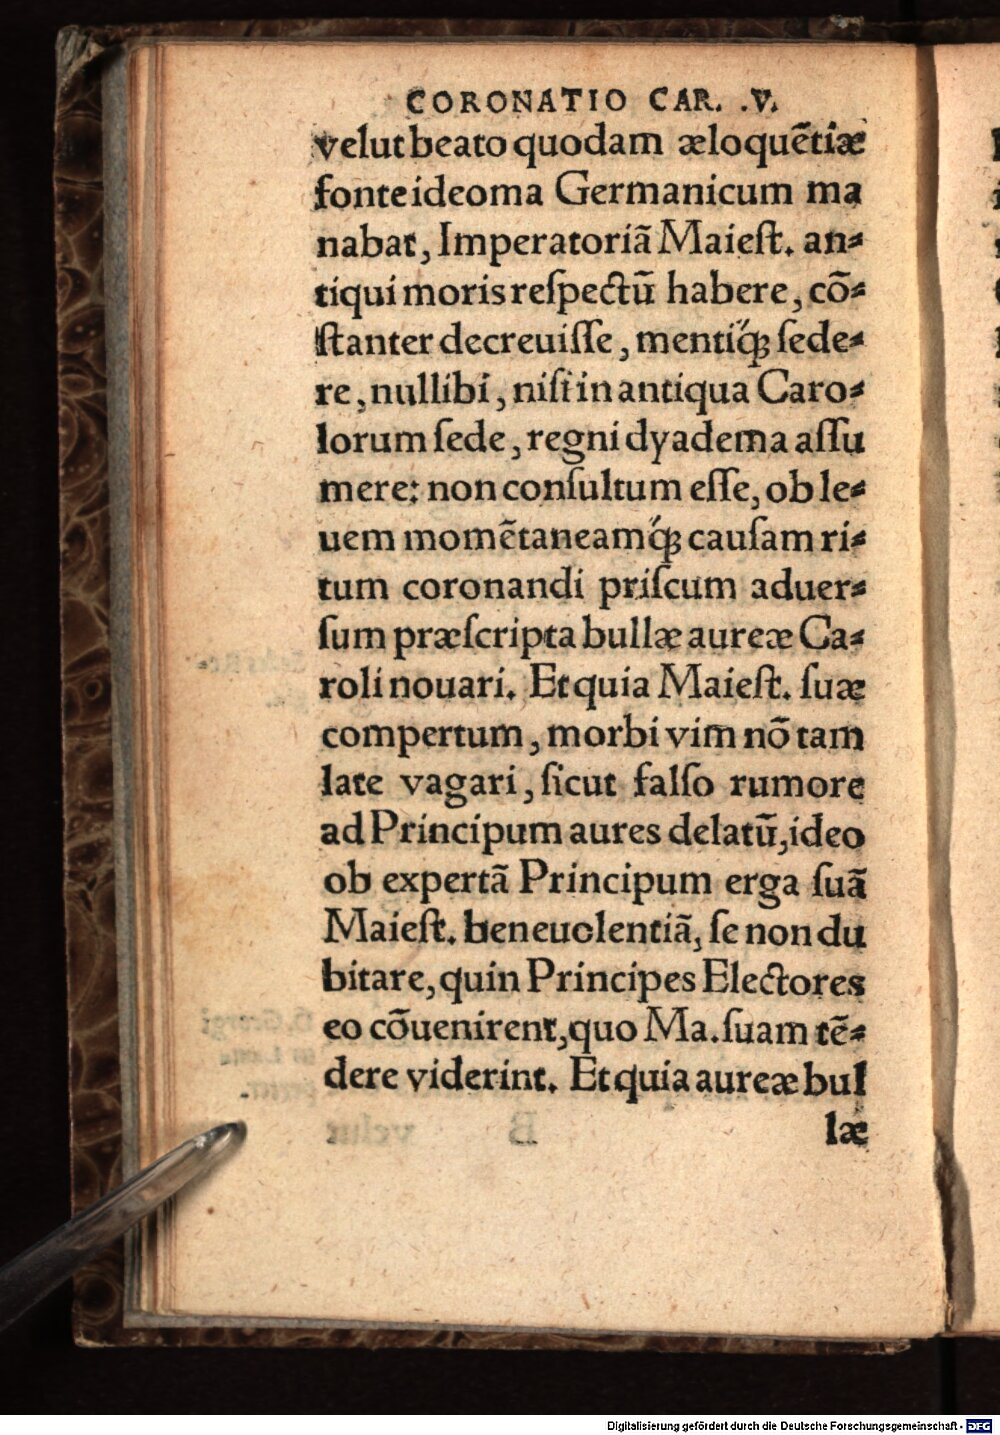 CORONATIO CAR. .V.
velut beato quodam æloquẽtiæ
fonte ideoma Germanicum ma
nabat, Imperatoriã Maieſt. an⸗
tiqui moris reſpectũ habere, cõ⸗
ſtanter decreuiſſe, mentiq́ꝫ ſede⸗
re, nullibi, niſi in antiqua Caro⸗
lorum ſede, regni dyadema aſſu
mere: non conſultum eſſe, ob le⸗
uem momẽtaneamq́ꝫ cauſam ri⸗
tum coronandi priſcum aduer⸗
ſum præſcripta bullæ aureæ Ca⸗
roli nouari. Et quia Maieſt. ſuæ
compertum, morbi vim nõ tam
late vagari, ſicut falſo rumore
ad Principum aures delatũ, ideo
ob expertã Principum erga ſuã
Maieſt. beneuolentiã, ſe non du
bitare, quin Principes Electores
eo cõuenirent, quo Ma. ſuam tẽ⸗
dere viderint. Et quia aureæ bul
læ
Digitalisierung gefördert durch die Deutsche Forschungsgemeinschaft - DFG